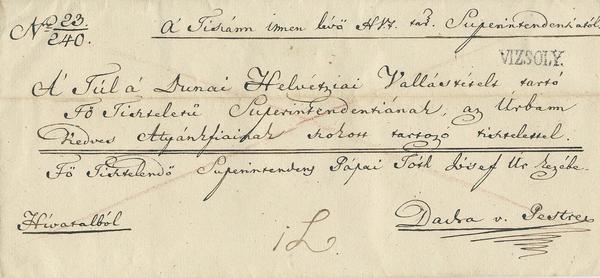 Nro 23. / 240.
A Tiszánn innen lévő H.Vt. tar. Superintendentiától.
VIZSOLY.
A' Túl a' Dunai Helvétziai Vallástételt tartó
Fő Tiszteletű Superintendentiának, az Úrbann
Kedves Atyánkfiainak szokott tartozó tisztelettel.
Fő Tisztelendő Superintendens Pápai Tóth József Úr kezébe.
Hivatalból
Pestre